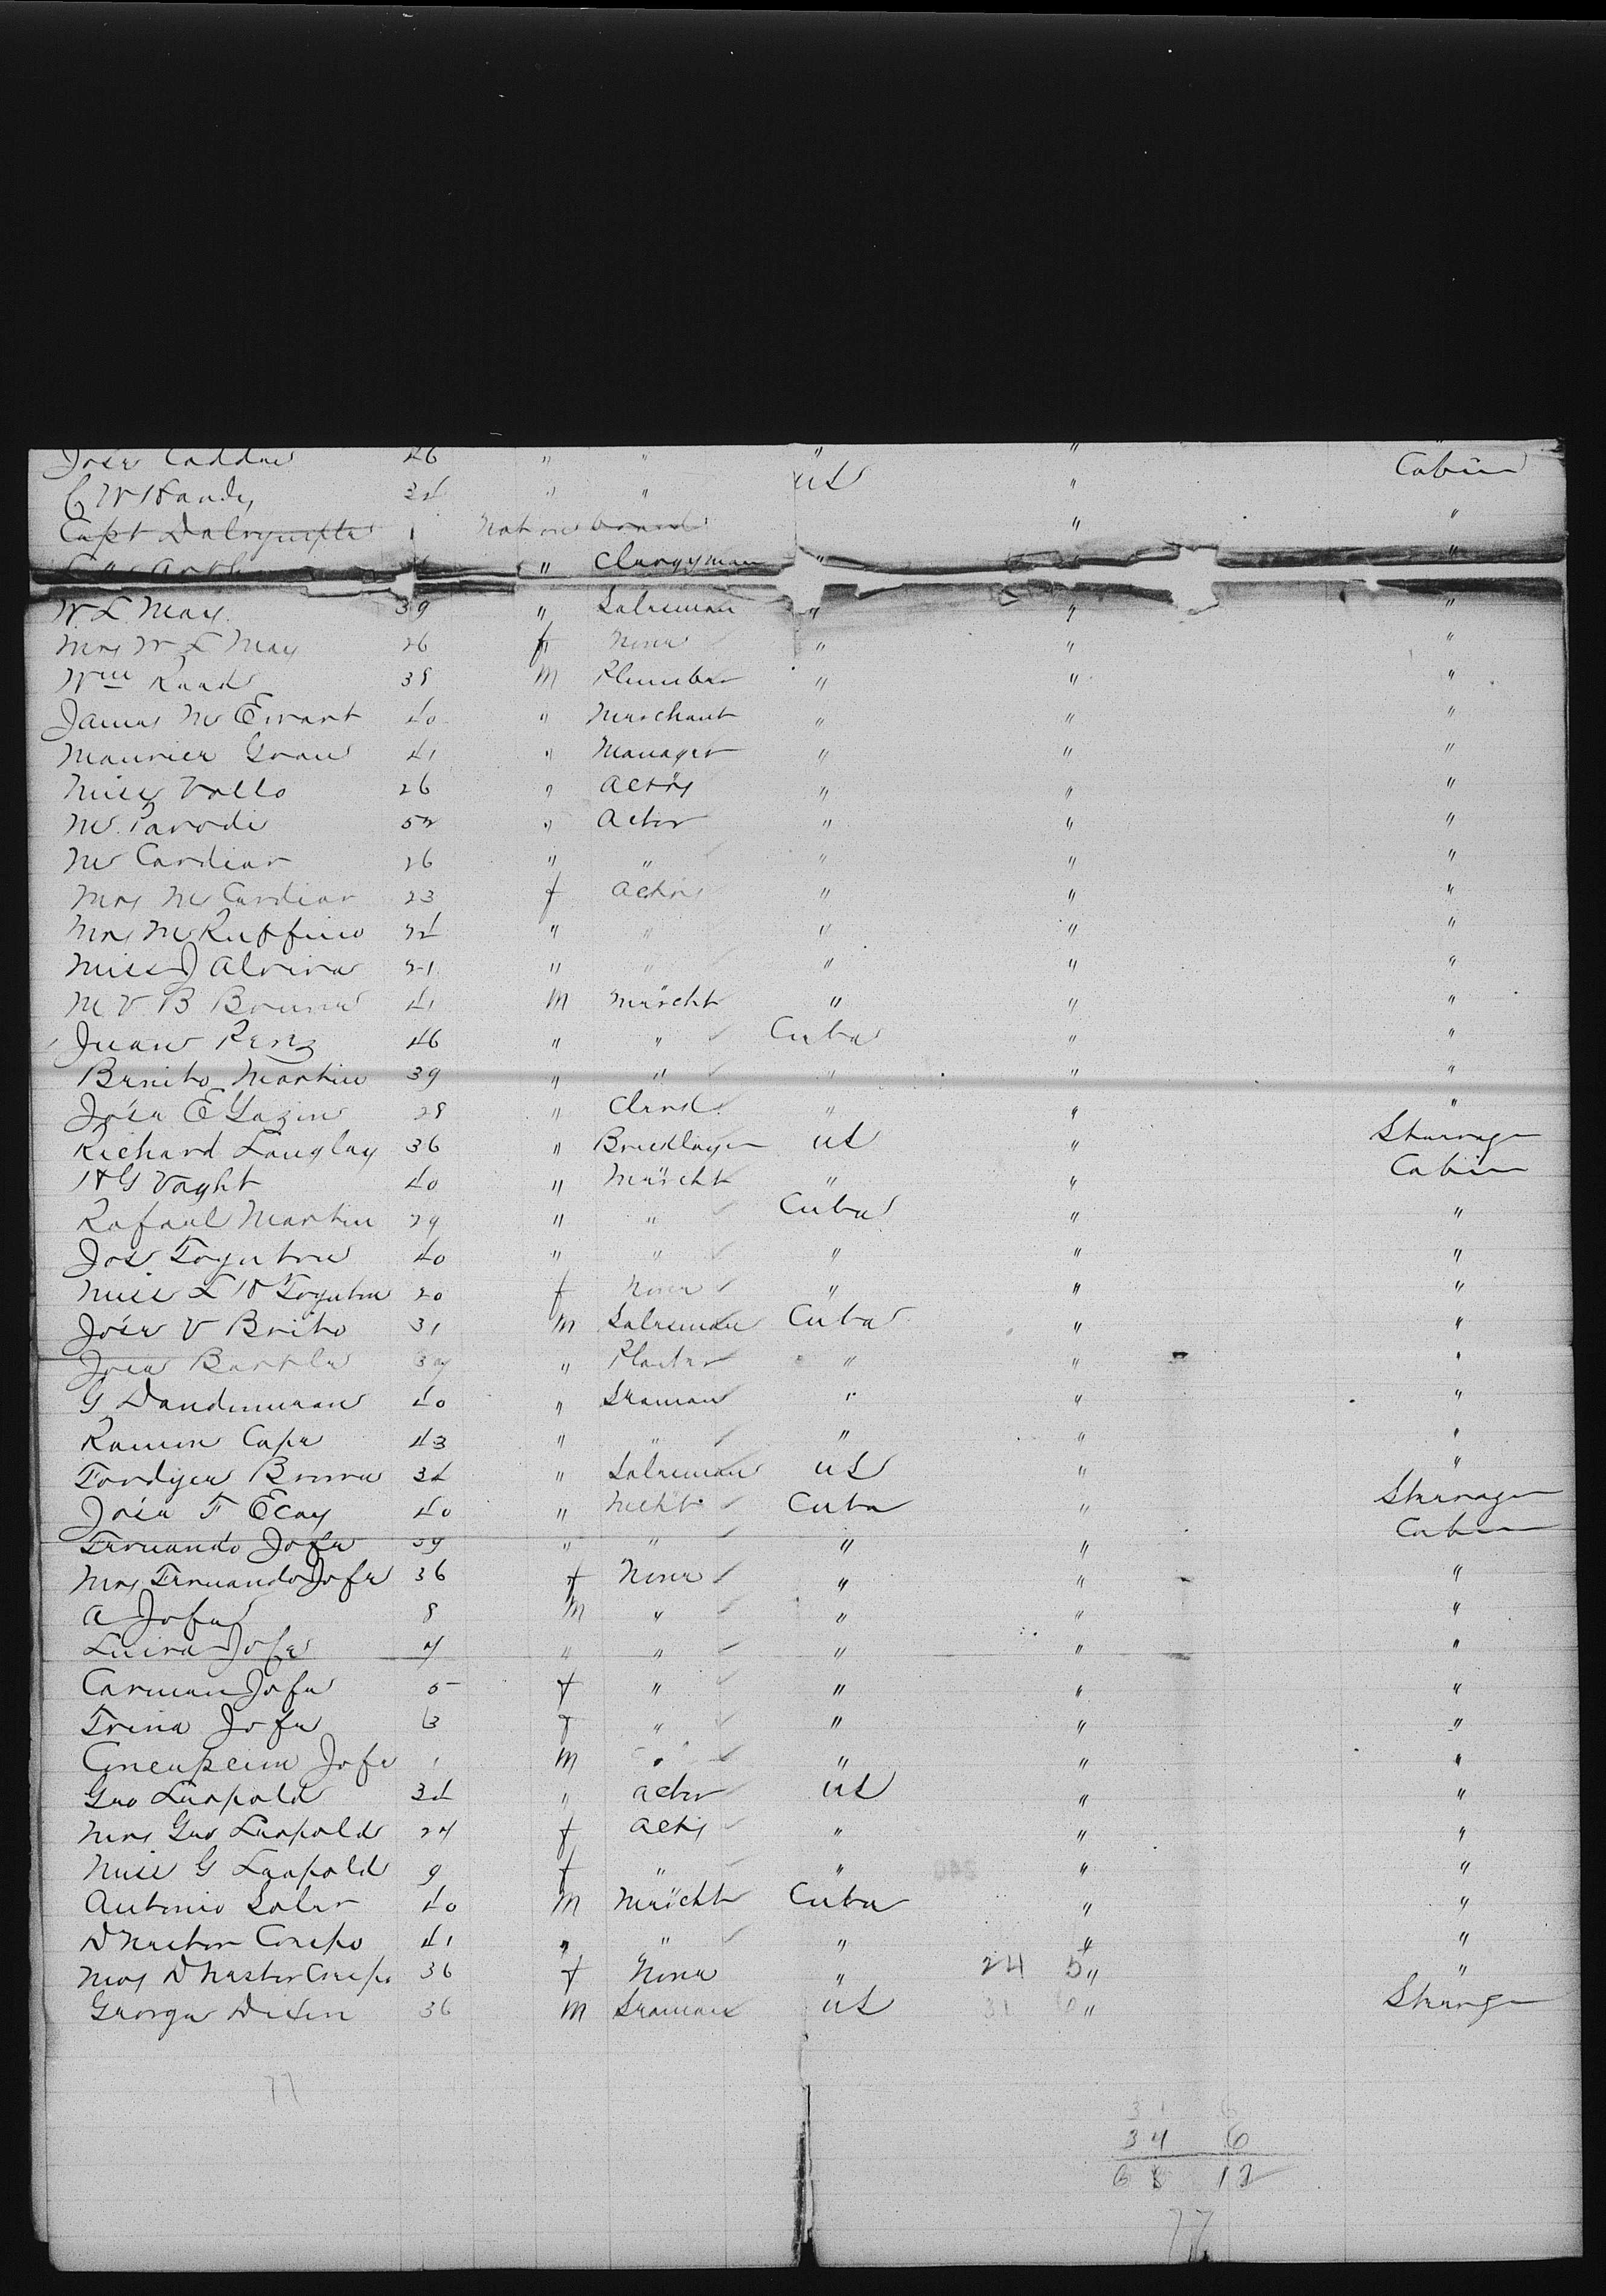 Jose Caddau 46 " " " "
C W Handy 34 " " US " Cabin
Capt Dalrymple 1 Not on board " "
" Clergyman " " "
W L May 39 " Salesman " " "
Mrs W L May 26 f None " " "
Wm Raad 38 M Plumber " " "
James McEwart 40 " Merchant " " "
Maurice Grau 41 " Manager " " "
Miss Vallo 26 " Actrs " " "
Mr Parodi 52 " Actor " " "
Mr Cardiar 26 " " " " "
Mrs Mr Cardiar 23 f Actrs " " "
Mrs M Ruffino 24 " " " " "
Miss J Alvira 21 " " " " "
M V B Brown 41 M Mercht " " "
Juan Renz 46 " " Cuba " "
Benito Martin 39 " " " " "
Jose E Gazin 28 " Clerk " " "
Richard Langlay 36 " Bricklayer US " Steerage
H G Vaght 40 " Mercht " " Cabin
Rafael Martin 29 " " Cuba " "
Jos 40 " " " " "
Miss L H 20 f None " " "
Jose V Brito 31 M Salesman Cuba " "
Jose " Planter " " "
G 40 " Seaman " " "
Ramon Cape 43 " " " " "
Fordyce Brown 34 " Salesman US " "
Jose F Ecay 40 " Mcht Cuba " Steerage
Fernando Jofe 39 " " " " Cabin
Mrs Fernando Jofe 36 f None " " "
A Jofe 8 M " " " "
Luisa Jofe 4 " " " " "
Carmen Jofe 5 f " " " "
Trina Jofe 3 f " " " "
Concepcion Jofe 1 M " " " "
Geo Leopold 34 " actor US " "
Mrs Geo Leopold 24 f acts " " "
Miss G Leopold 9 f " " " "
Antonio Soler 40 M Mercht Cuba " "
D Nestor Crespo 41 " " " " "
Mrs D Nestor Crespo 36 f None " 24 5 " "
George Dixon 36 M Seaman US 31 6 " Steerage
77
31 6
34 6
68 12
77